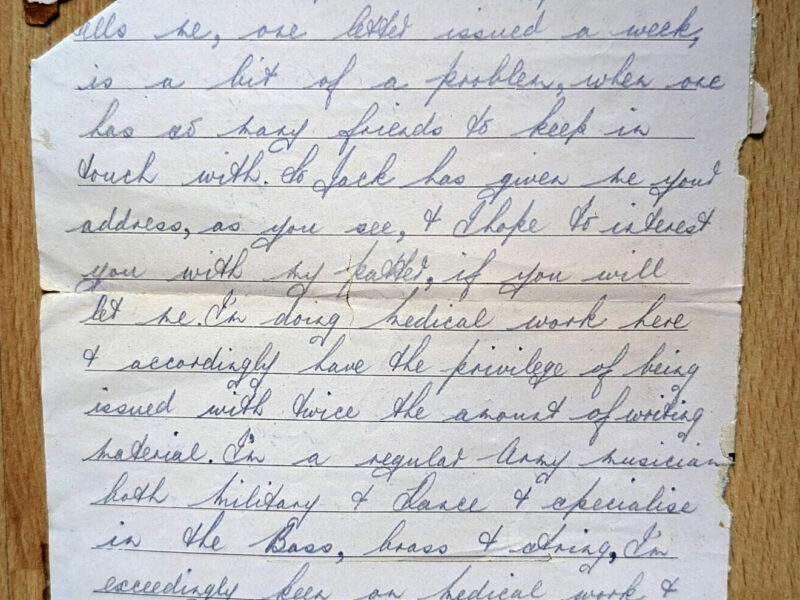 tells me, one letter issued a week,
is a bit of a problem, when one
has so many friends to keep in
touch with. So Jack has given me your
address, as you see, & I hope to interest
you with my patter, if you will
let me. I'm doing medical work here
& accordingly have the privilege of being
issued with twice the amount of writing
material. I'm a regular Army musician
both military & Dance & specialise
in the Bass, brass & string, I'm
exceedingly keen on medical work &